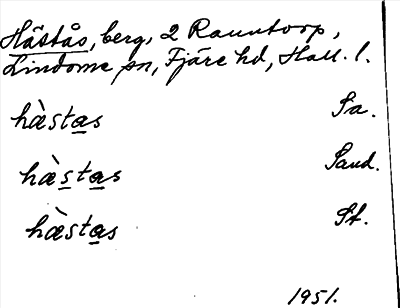 Hästås, berg, 2 Ranntorp,
Lindome sn, Fjäre hd, Hall. l.
hæ̀stas Sa.
hæ̀stas Sand.
hæ̀stas St.
1951.